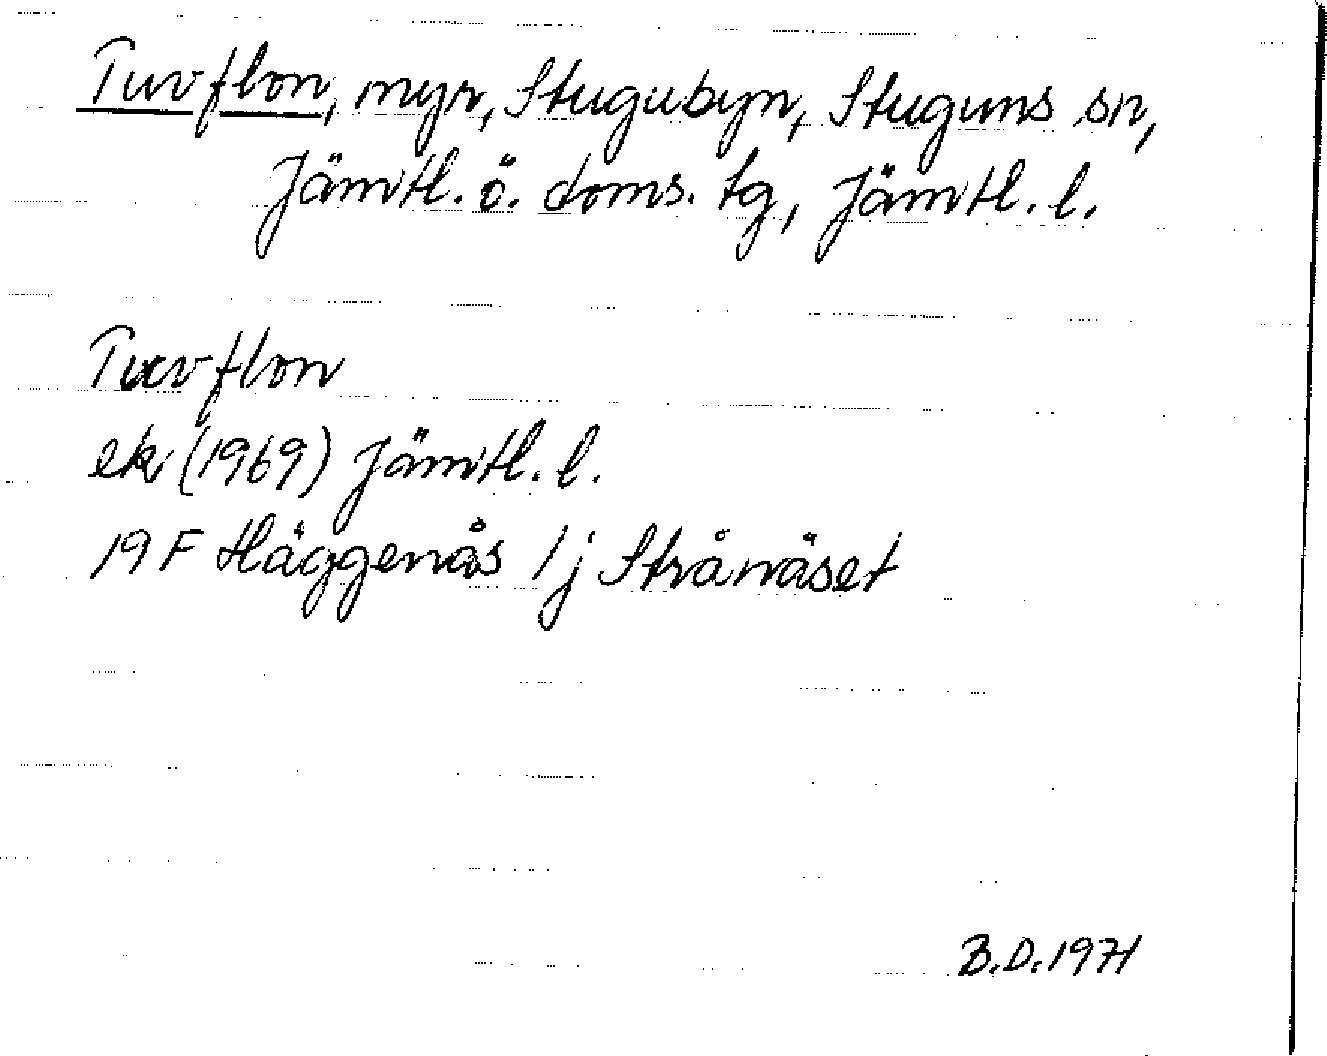 Tuvflon, myr, Stugubyn, Stuguns sn,
Jämtl. ö. doms. tg, Jämtl. l.
Tuvflon
ek (1969) Jämtl. l.
19 F Häggenås 1j Strånäset
B.D. 1971